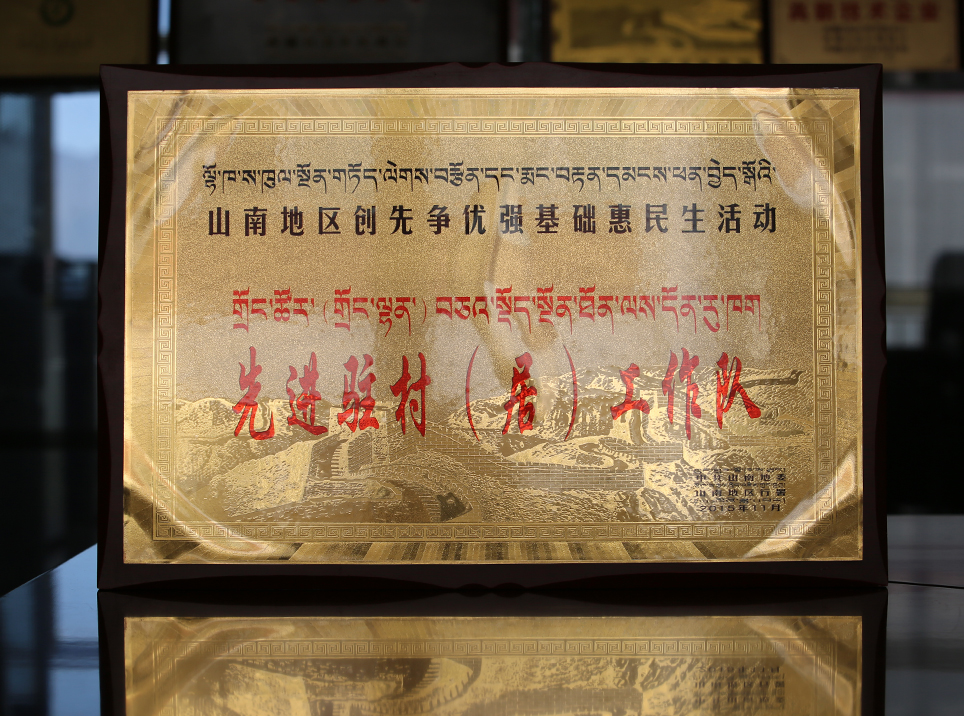 ལྷོ་ཁ་ས་ཁུལ་སྔོན་གཏོད་ལེགས་བརྩོན་དང་རྨང་བརྟན་དམངས་ཕན་བྱེད་སྒོའི་
山南地区创先争优强基础惠民生活动
གྲོང་ཚོར་(གྲོང་ལྷན་)བཅའ་སྡོད་སྔོན་ཐོན་ལས་དོན་རུ་ཁག
先进驻村（居）工作队
中共山南地委
山南地区行署
2015年11月